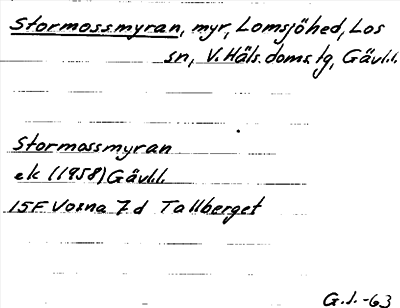 Stormossmyran, myr, Lomsjöhed, Los
sn, V. Häls. doms. lg, Gävl.l.
Stormossmyran
ek (1958) Gävl.l.
15F Voxna 7d Tallberget
G.J. -63